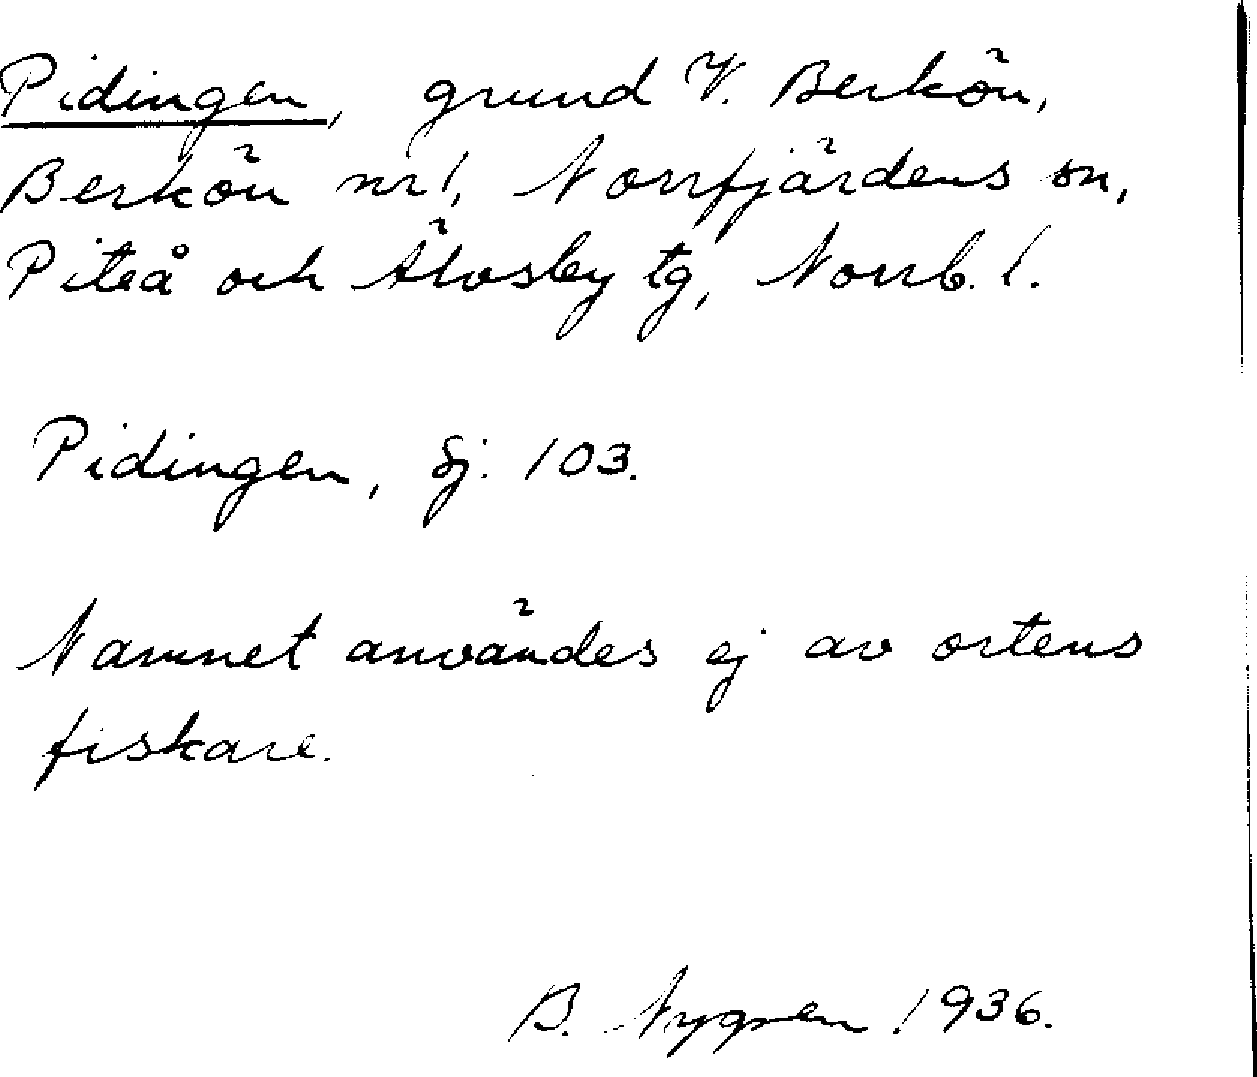 Pidingen, grund V. Berkön,
Berkön nr 1, Norrfjärdens sn,
Piteå och Älvsby tg, Norrb. l.
Pidingen, Sj. 103.
Namnet användes ej av ortens
fiskare.
B. Nygren 1936.